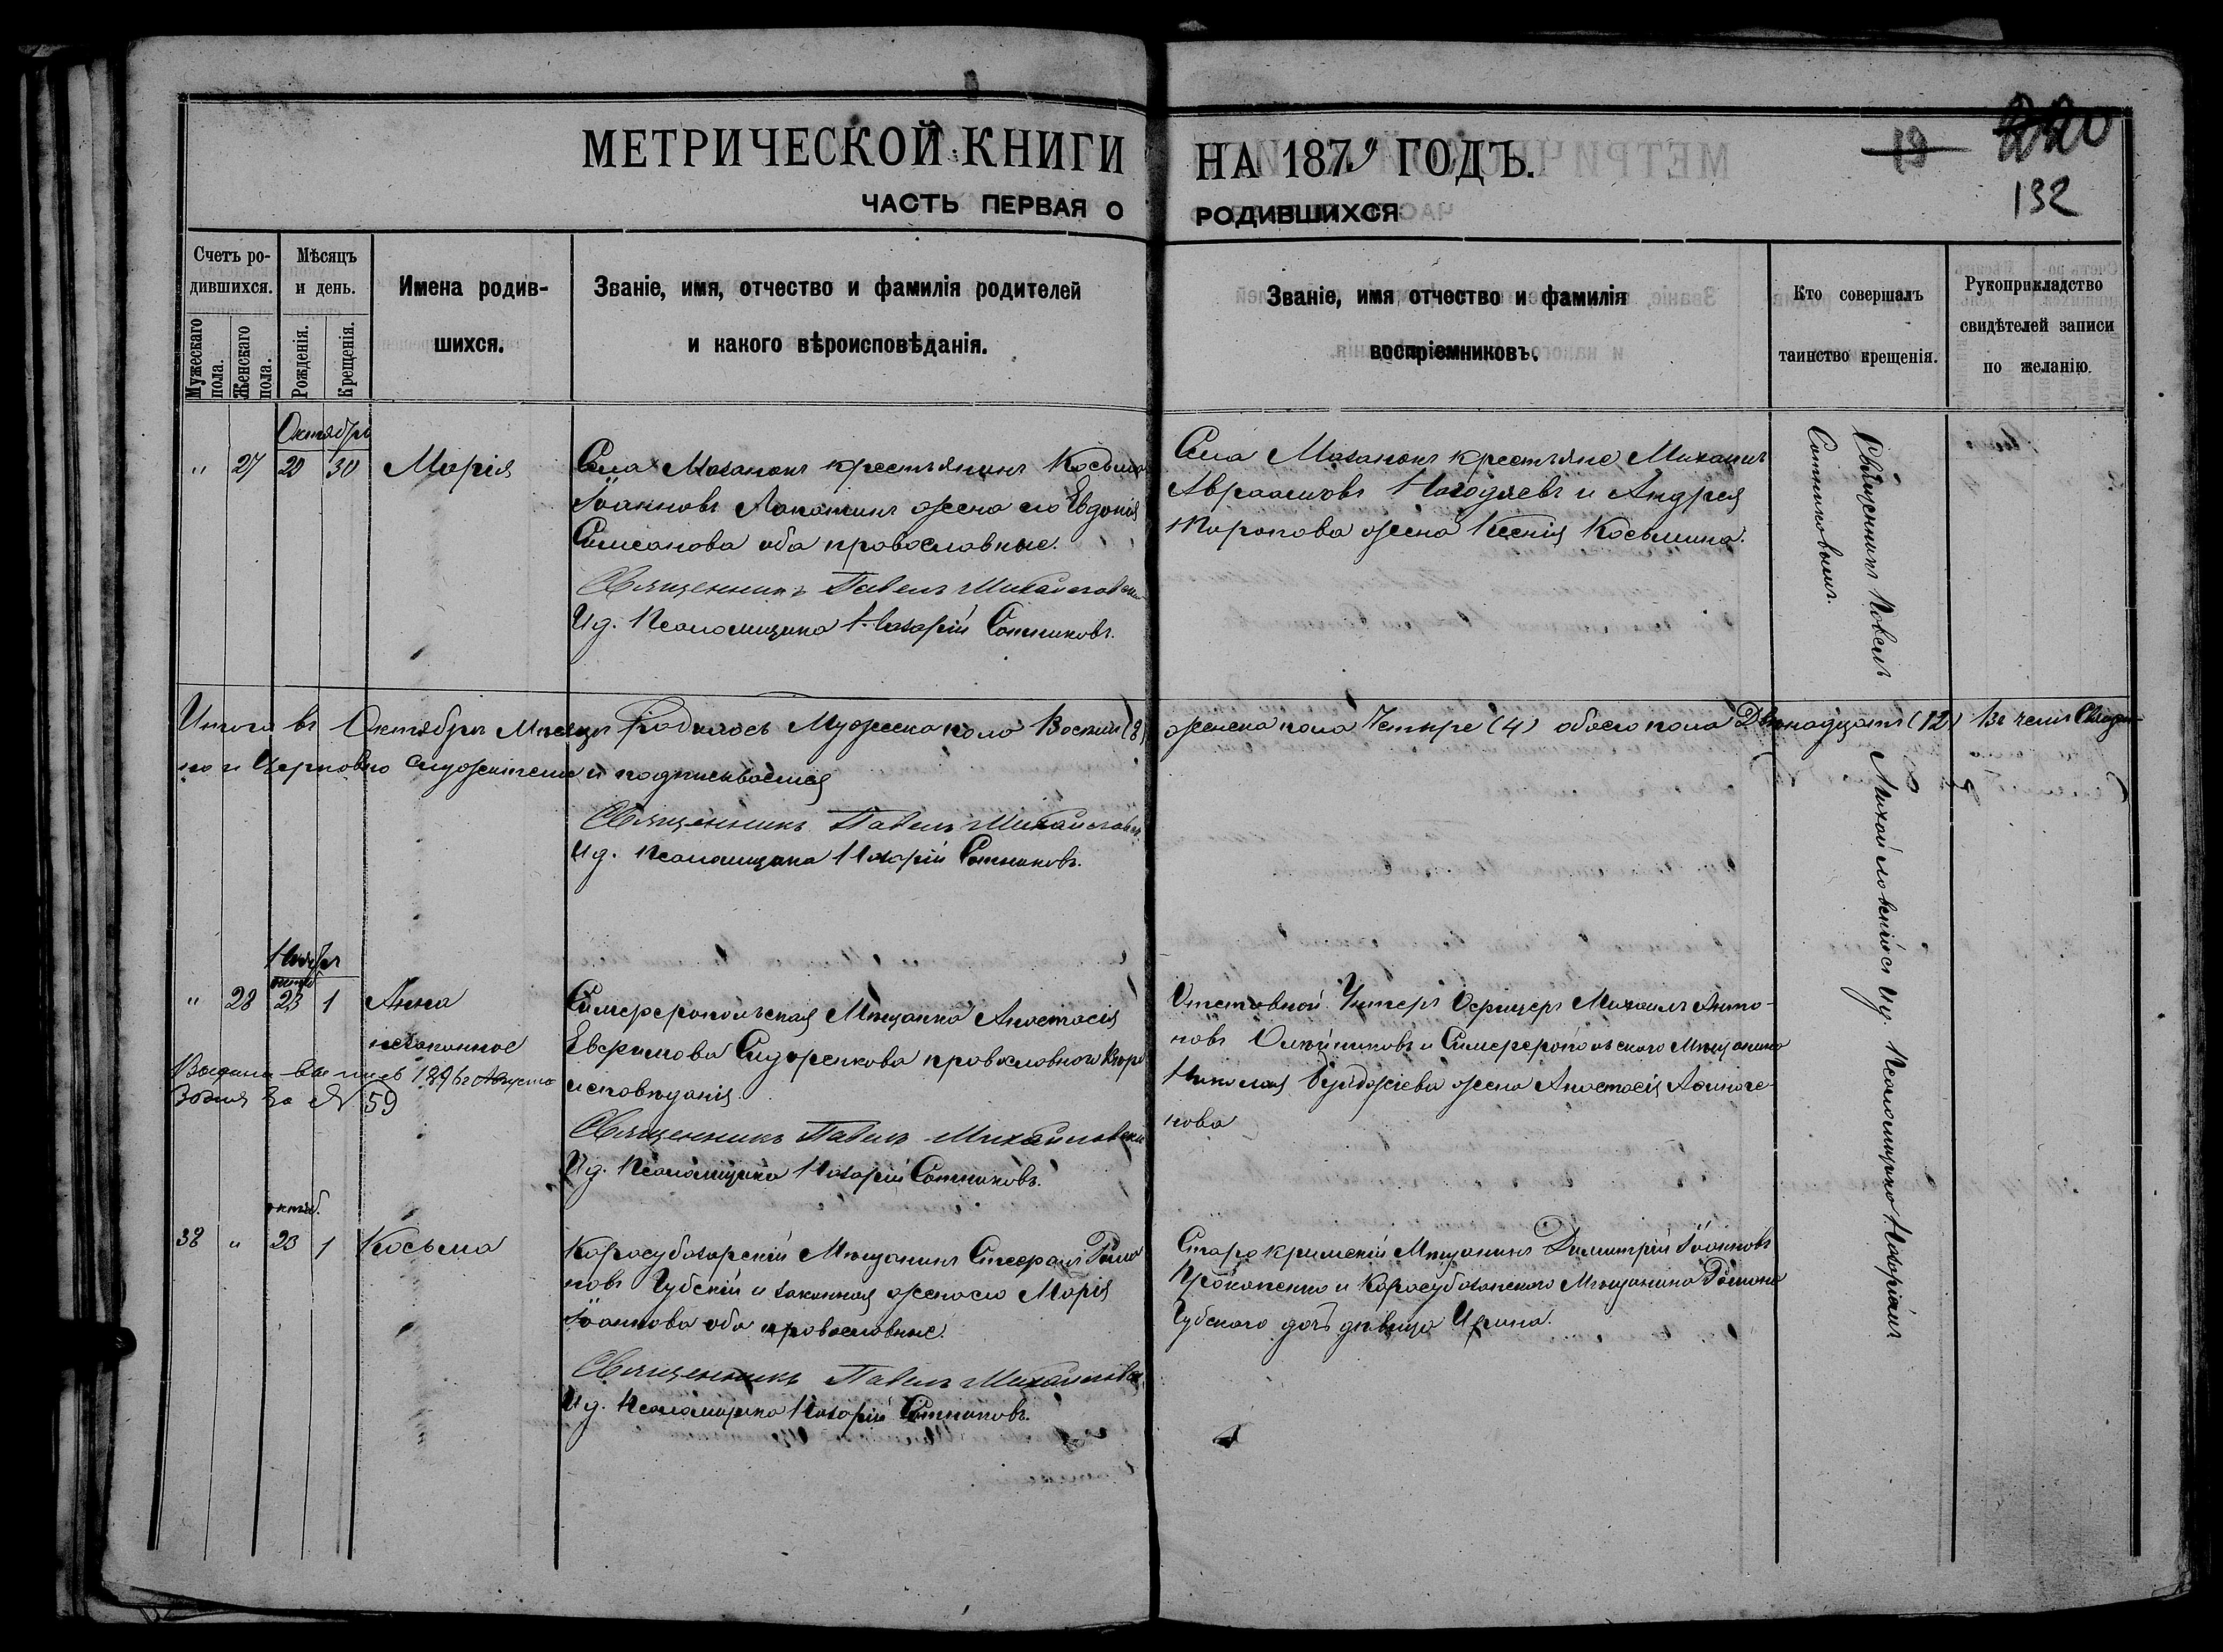 МЕТРИЧЕСКОЙ КНИГИ НА 1879 ГОДЪ.
ЧАСТЬ ПЕРВАЯ О РОДИВШИХСЯ
19
220
132
Счетъ ро-
дившихся.
Мужескаго
пола.
Женскаго
пола.
Мѣсяцъ
и день.
Рожденія.
Крещенія.
Имена родив-
шихся.
Званіе, имя, отчество и фамилія родителей
и какого вѣроисповѣданія.
Званіе, имя отчество и фамилія
воспріемниковъ.
Кто совершалъ
таинство крещенія.
Рукоприкладство
свидѣтелей записи
по желанію.
Октябрь
" 27 29 30 Марія
Села Мазанокъ крестьянинъ Косьма
Іоанновъ Лапинъ жена его Евдокія
Симеонова оба православные.
Священникъ Павелъ Михайловскій
И.д. Псаломщика Назарій Сотниковъ.
Села Мазанокъ крестьяне Михаилъ
Авраамовъ и Андрея
жена Ксенія Косьмина.
Священникъ Павелъ Михайловскій съ И.д. Псаломщика Назаріемъ
Сотниковымъ.
Итого въ Октябрѣ Мѣсяцѣ Родилось Мужеска пола Восемь (8) женска пола Четыре (4) обоего пола Двенадцать (12) Въ чемъ Священ-
но и Церковно служители и подписываемся
Священникъ Павелъ Михайловскій
И.д. Псаломщика Назарій Сотниковъ.
Ноябрь
октяб
" 28 23 1 Анна
незаконное
Выдана выпись 1896 г Августа
30 дня за № 59
Симферопольская Мѣщанка Анастасія
Евфимова Сидоренкова православнаго Вѣро
исповѣданія.
Священникъ Павелъ Михайловскій
И.д. Псаломщика Назарій Сотниковъ.
Отставной Унтеръ Офицеръ Михаилъ Анто-
новъ Олейниковъ и Симферопольскаго Мѣщанина
Николая жена Анастасія
нова
октяб.
38 " 23 1 Косьма
Карасубазарскій Мѣщанинъ Стефанъ Рома
новъ Губскій и законная жена его Марія
Іоаннова оба православные.
Священникъ Павелъ Михайловскій
И.д. Псаломщика Назарій Сотниковъ.
Старокрымскій Мѣщанинъ Димитрій Іоанновъ
Прокопенко и Карасубазарскаго Мѣщанина Романа
Губскаго дочь дѣвица Ирина.